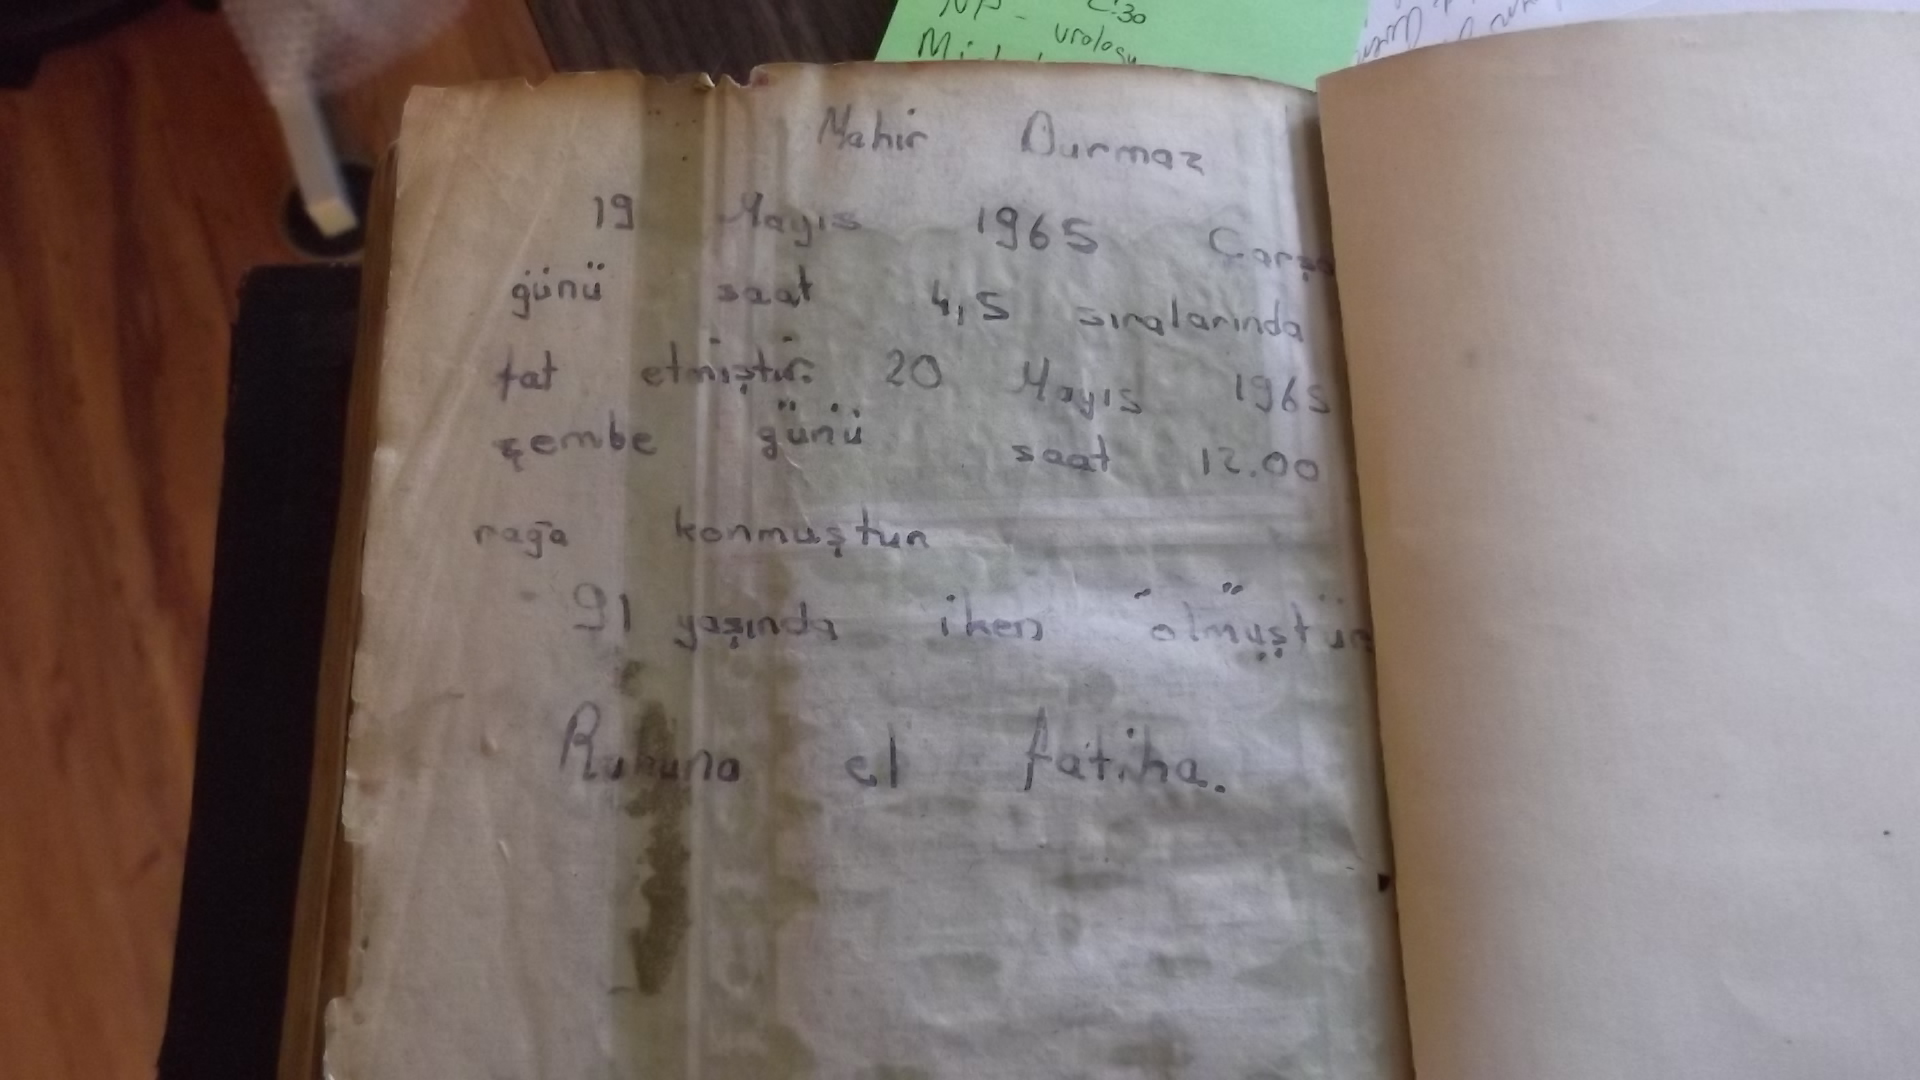 2:30
urology
Mahir Durmaz
19 Mayıs 1965 Çarşa
günü saat 4,5 sıralarında
fat etmiştir. 20 Mayıs 1965
şembe günü saat 12.00
rağa konmuştur
91 yaşında iken ölmüştür
Ruhuna el fatiha.